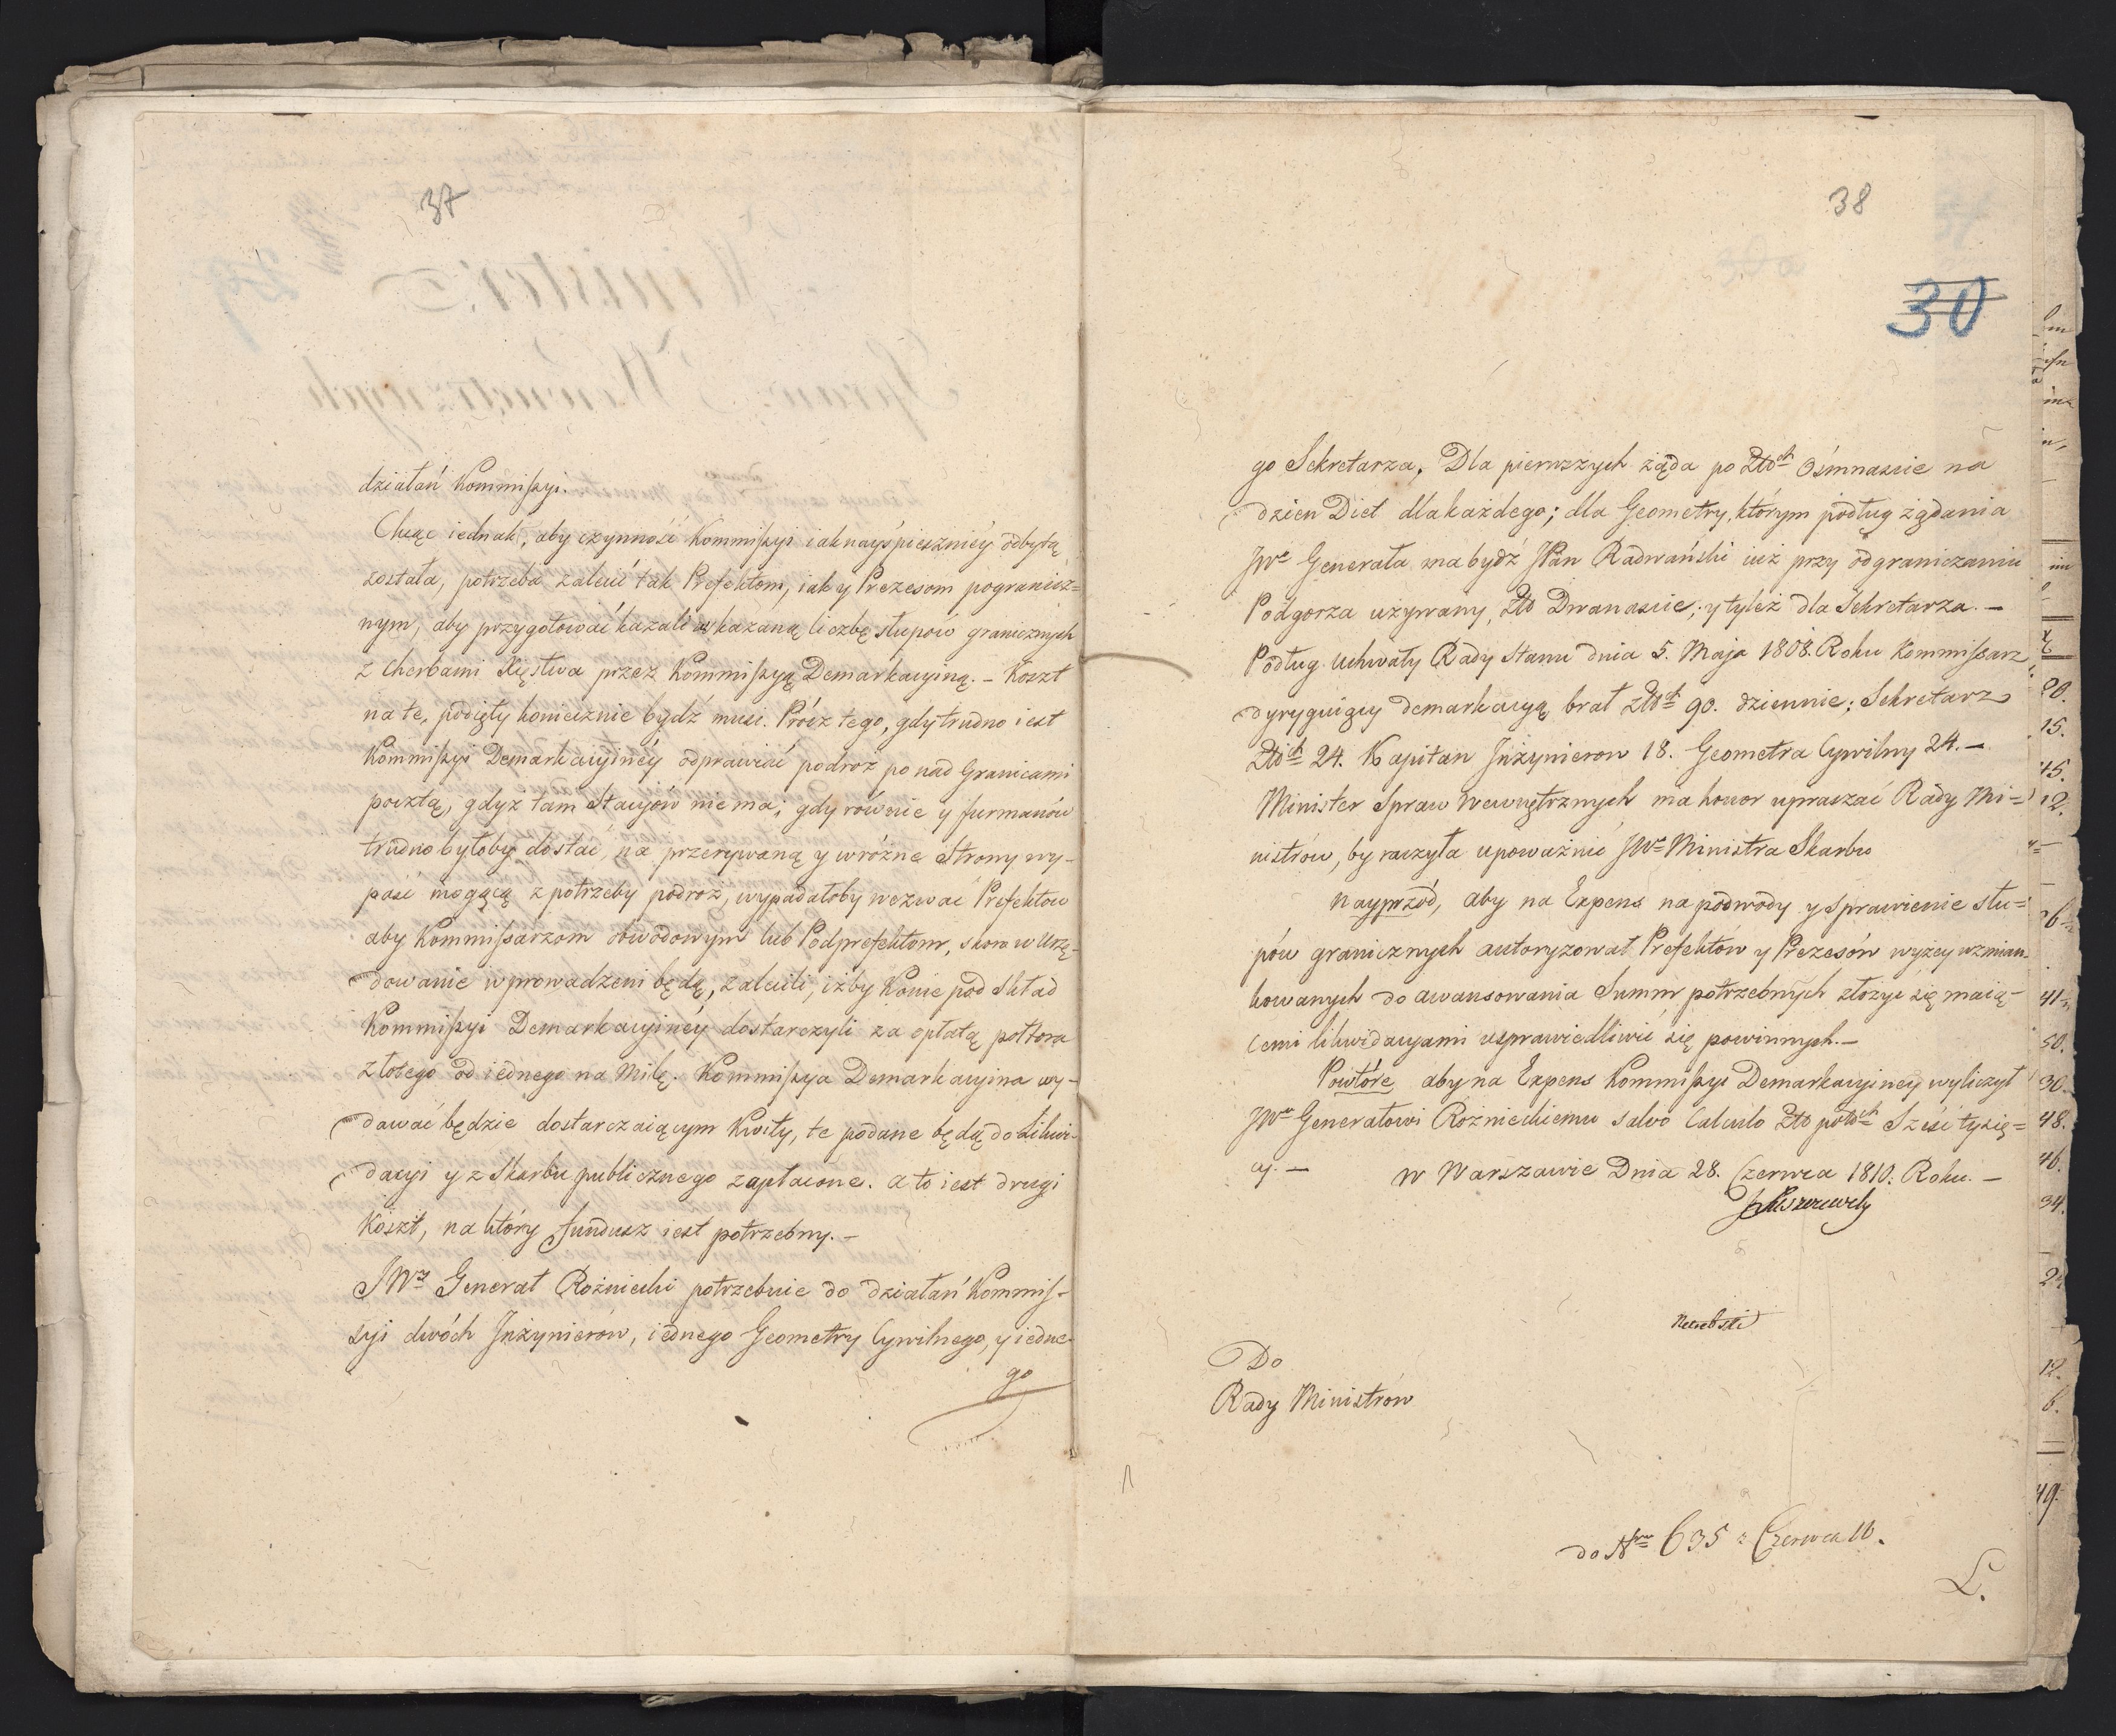 37
działań Kommissyi.
Chcąc iednak, aby czynność Kommissyi iak nayśpieszniéy odbytą
została, potrzeba zalecić tak Prefektom, iak y Prezesom pogranicz=
nym, aby przygotować kazali wskazaną liczbę słupów granicznych
z cherbami Xięstwa przez Kommissyą Demarkacyiną. – Koszt
na te, podięty koniecznie bydź musi. Prócz tego, gdy trudno iest
Kommissyi Demarkacyinéy odprawiać podroż ponad Granicami
pocztą, gdyż tam Stacyów niema; gdy równie y furmanów
trudno byłoby dostać na przerywaną y wróżne Strony wy-
paść mogącą z potrzeby podroż, wypadałoby wezwać Prefektow
aby Kommissarzom obwodowym lub Podprefektom, skoro w Urzę-
dowanie wprowadzeni będą, zalecili, iżby Konie pod Skład
Kommissyi Demarkacyinéy dostarczyli za opłatą półtora
złotego od iednego na Milę. Kommissya Demarkacyina wy-
dawać będzie dostarczaiącym Kwity, te podane będą do Likwi-
dacyi y z Skarbu publicznego zapłacone. a to iest drugi
Koszt, na który fundusz iest potrzebny. –
JWy Generał Rożniecki potrzebuie do działań Kommis-
syi dwóch Inżynierów, iednego Geometry Cywilnego, y iedne-
go
38
30
go Sekretarza, Dla pierwszych żąda po Złłch Ośmnaście na
dzien Diet dla każdego; dla Geometry, którym podług żądania
JWo Generała ma bydź JPan Radwański iuż przy odgraniczaniu
Podgorza używany, Złł Dwanaście; y tyleż dla Sekretarza. –
Podług Uchwały Rady Stanu dnia 5. Maja 1808. Roku Kommissarz
dyryguiący demarkacyą brał Złłch 90. dziennie; Sekretarz
Złłch 24. Kapitan Inżynierow 18. Geometra Cywilny 24. –
Minister Spraw Wewnętrznych ma honor upraszać Rady Mi=
nistrów, by raczyła upoważnić JWo Ministra Skarbu
Nayprzód, aby na Expens na podwody y sprawienie słu=
pów granicznych autoryzował Prefektów y Prezesów wyżey wzmian-
kowanych do awansowania Summ potrzebnych złożyć się maią-
cemi likwidacyami usprawiedliwić się powinnych. –
Powtóre, aby na Expens Kommissyi Demarkacyiney wyliczył
JWu Generałowi Rożnieckiemu salvo Calculo Złł polłch Sześć tysię=
cy. – w Warszawie Dnia 28. Czerwca 1810. Roku. –
Do
Rady Ministrów
do Nru 635 z Czerwca 10.
L.